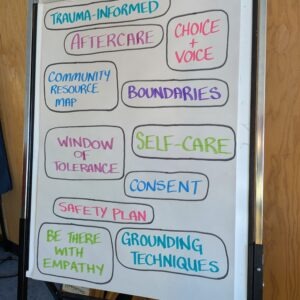 TRAUMA-INFORMED
AFTERCARE
CHOICE
+
VOICE
COMMUNITY
RESOURCE
MAP
BOUNDARIES
WINDOW
OF
TOLERANCE
SELF-CARE
CONSENT
SAFETY PLAN
BE THERE
WITH
EMPATHY
GROUNDING
TECHNIQUES